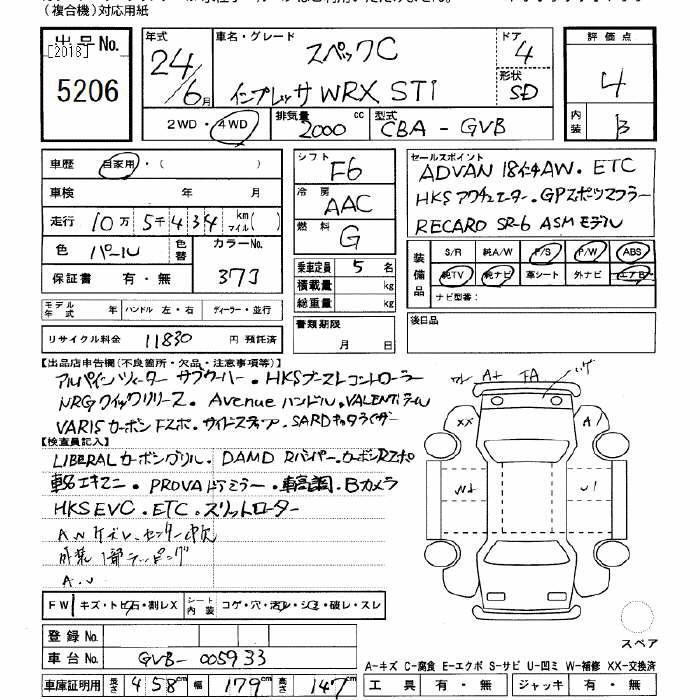 (複合機)対応用紙
出品No.
[2018]
5206
年式
24/6月
車名・グレード
スペックC
インプレッサ WRX STi
ドア
4
形状
SD
評価点
4
内装
B
2WD・4WD
排気量
2000 cc
型式
CBA - GVB
車歴 自家用・( )
車検 年 月
走行 10万5千434 km マイル( )
色 パール 色替 カラーNo. 37J
保証書 有・無
モデル年式 年 ハンドル 左・右 ディーラー・並行
リサイクル料金 11830 円 預託済
シフト F6
冷房 AAC
燃料 G
乗車定員 5 名
積載量 kg
総重量 kg
書類期限
月 日
セールスポイント
ADVAN 18インチAW. ETC
HKSアクチュエーター.GPスポーツマフラー
RECARO SR-6 ASMモデル
装備品 S/R 純A/W P/S P/W ABS
純TV 純ナビ 革シート 外ナビ エアB
ナビ型番:
後日品
【出品店申告欄(不良箇所・欠品・注意事項等)】
アルパインツィーター サブウーハー.HKSブーストコントローラー
NRGクイックリリース. Avenueハンドル.VALENTIテール
VARISカーボンFスポ.サイドステップ.SARDキャタライザー
【検査員記入】
LIBERALカーボングリル. DAMD Rバンパー.カーボンRスポ
車名エキマニ. PROVAドアミラー.車高調.Bカメラ
HKS EVC. ETC.スリットローター
A.N
内装1部
A.
FW キズ・トビ石・割レX シート内装 コゲ・穴・汚レ・シミ・破レ・スレ
登録No.
車台No. GVB-005933
車庫証明用 長さ 458cm 幅 179cm 高さ 147cm
A+ FA
XX
A1
スペア
A-キズ C-腐食 E-エクボ S-サビ U-凹ミ W-補修 XX-交換済
工具 有・無 ジャッキ 有・無